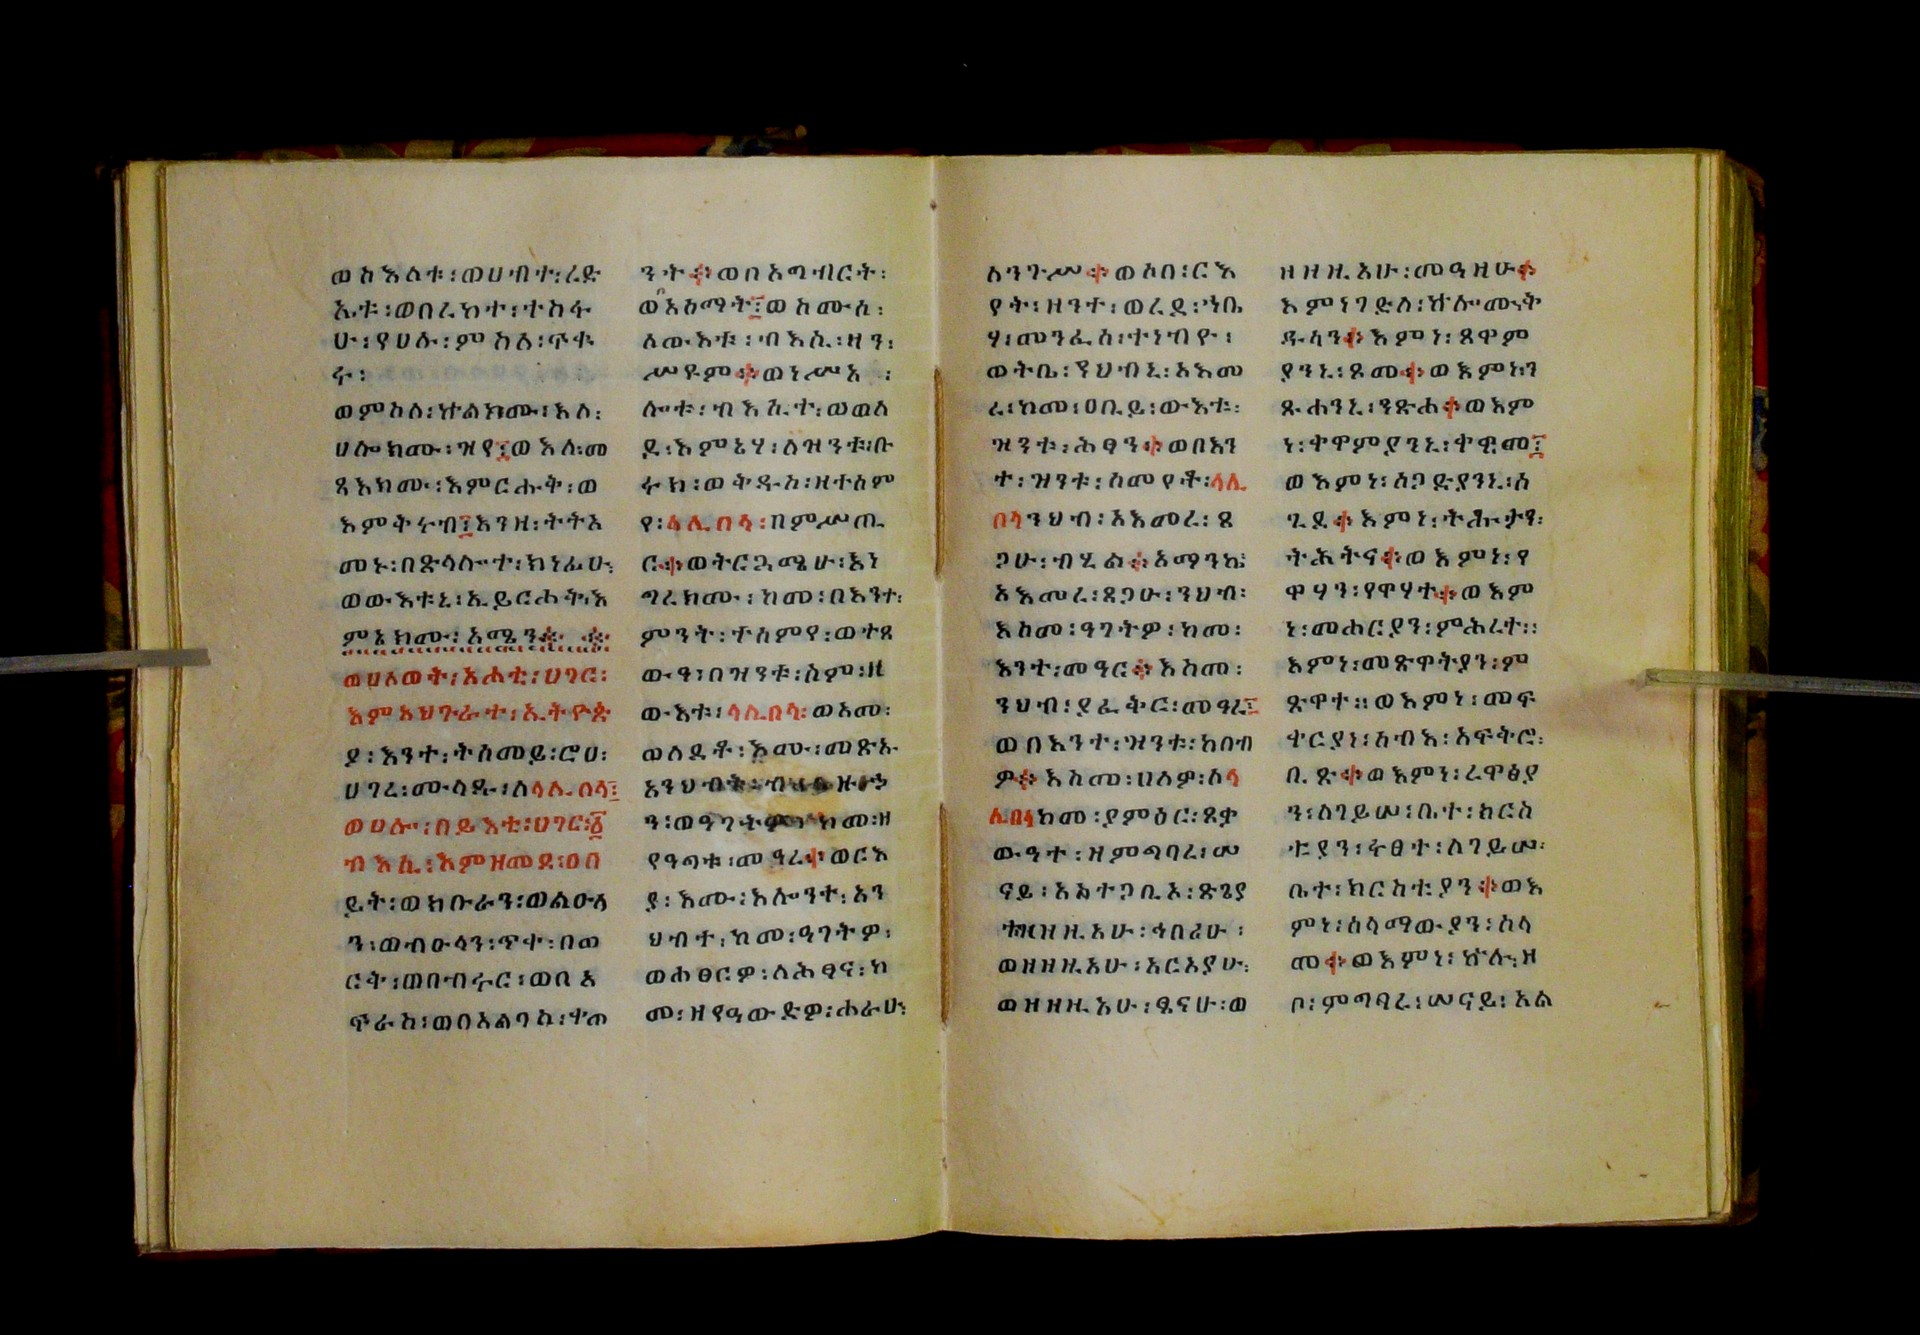 ወበእሉቱ፡ወሀብተ፡ረድ
ኤቱ፡ወበረከተ፡ተስፋ
ሁ፡የሀሉ፡ምስለ፡ጥቁ
ሩ፡
ወምስለ፡ኵልክሙ፡እለ፡
ሀሎክሙ፡ዝየ፤ወእለ፡መ
ጻእክሙ፡እምርሑቅ፡ወ
እምቅሩብ፤እንዘ፡ትትአ
መኑ፡በጽላሎተ፡ክነፊሁ፡
ወውእቱኒ፡ኢይርሐቅ፡እ
ምኔክሙ፡አሜን።
ወሀለወት፡አሐቲ፡ሀገር፡
እምአህጉራተ፡ኢትዮጵ
ያ፡እንተ፡ትሰመይ፡ሮሀ፡
ሀገረ፡ሙላዱ፡ለላሊበላ፤
ወሀሎ፡በይእቲ፡ሀገር፡፩
ብእሲ፡እምዘመደ፡ዐበ
ይት፡ወክቡራን፡ወልዑላ
ን፡ወብዑላን፡ጥቀ፡በወ
ርቅ፡ወበብሩር፡ወበአ
ፍራስ፡ወበአልባስ፡ቀጠ
ንት፡ወበአግብርት፡
ወአእማት፤ወስሙሰ፡
ለውእቱ፡ብእሲ፡ዛን፡
ሥዩም፡ወነሥአ፡
ሎቱ፡ብእሲተ፡ወወለ
ደ፡እምኔሃ፡ለዝንቱ፡ቡ
ሩክ፡ወቅዱስ፡ዘተሰም
የ፡ላሊበላ፡በምሥጢ
ር፡ወትርጓሜሁ፡እነ
ግረክሙ፡ከመ፡በእንተ፡
ምንት፡ተሰምየ፡ወተጸ
ውዓ፡በዝንቱ፡ስም፡ዘ
ውእቱ፡ላሊበላ፡ወአመ፡
ወለደቶ፡እሙ፡መጽኡ
አንህብት፡
ን፡ወዓገትዎ፡ከመ፡ዘ
የዓግቱ፡መዓረ፡ወርእ
ያ፡እሙ፡እሎንተ፡አን
ህብተ፡ከመ፡ዓገትዎ፡
ወሐፀርዎ፡ለሕፃና፡ከ
መ፡ዘየዓውድዎ፡ሐራሁ፡
ለንጉሥ፡ወሶበ፡ርእ
የት፡ዘንተ፡ወረደ፡ኀቤ
ሃ፡መንፈሰ፡ተነብዮ፡
ወትቤ፡ንህብኒ፡አእመ
ረ፡ከመ፡ዐቢይ፡ውእቱ፡
ዝንቱ፡ሕፃን፡ወበእን
ተ፡ዝንቱ፡ሰመየቶ፡ላሊ
በላ፡ንህብ፡አእመረ፡ጸ
ጋሁ፡ብሂል፡አማንኬ፡
አእመረ፡ጸጋሁ፡ንህብ፡
እስመ፡ዓገትዎ፡ከመ፡
እንተ፡መዓር፡እስመ፡
ንህብ፡ያፈቅር፡መዓረ፤
ወበእንተ፡ዝንቱ፡ከበብ
ዎ፡እስመ፡ሀለዎ፡ለላ
ሊበላ፡ከመ፡ያምዕር፡ጸቃ
ውዓተ፡ዘምግባረ፡ሠ
ናይ፡አአተጋቢኦ፡ጽጌያ
ዘዚአሁ፡ኅበሪሁ፡
ወዘዘዚአሁ፡አርአያሁ፡
ወዘዘዚአሁ፡ፄናሁ፡ወ
ዘዘዚአሁ፡መዓዛሁ፡
እምነገድለ፡ኵሎሙ፡ቅ
ዱሳን፡እምነ፡ጸዋም
ያንኒ፡ጾመ፡ወእምነ፡ን
ጹሐንኒ፡ንጽሐ፡ወእም
ነ፡ቀዋምያንኒ፡ቀዊመ፤
ወእምነ፡ሰጋድያንኒ፡ሰ
ጊደ፡እምነ፡ትሑታን፡
ትሕትና፡ወእምነ፡የ
ዋሃን፡የዋሃተ፡ወእም
ነ፡መሐርያን፡ምሕረተ።
እምነ፡መጽዋትያን፡ም
ጽዋተ።ወእምነ፡መፍ
ቀርያነ፡አብእ፡አፍትሮ፡
ቢጽ፡ወእምነ፡ረዋፅያ
ን፡ለገይሠ፡ቤተ፡ክርስ
ቲያን፡ሩፀተ፡ለገይሠ፡
ቤተ፡ክርስቲያን፡ወእ
ምነ፡ሰላማውያን፡ሰላ
መ፡ወእምነ፡ኵሉ፡ዘ
ቦ፡ምግባረ፡ሠናይ፡አል